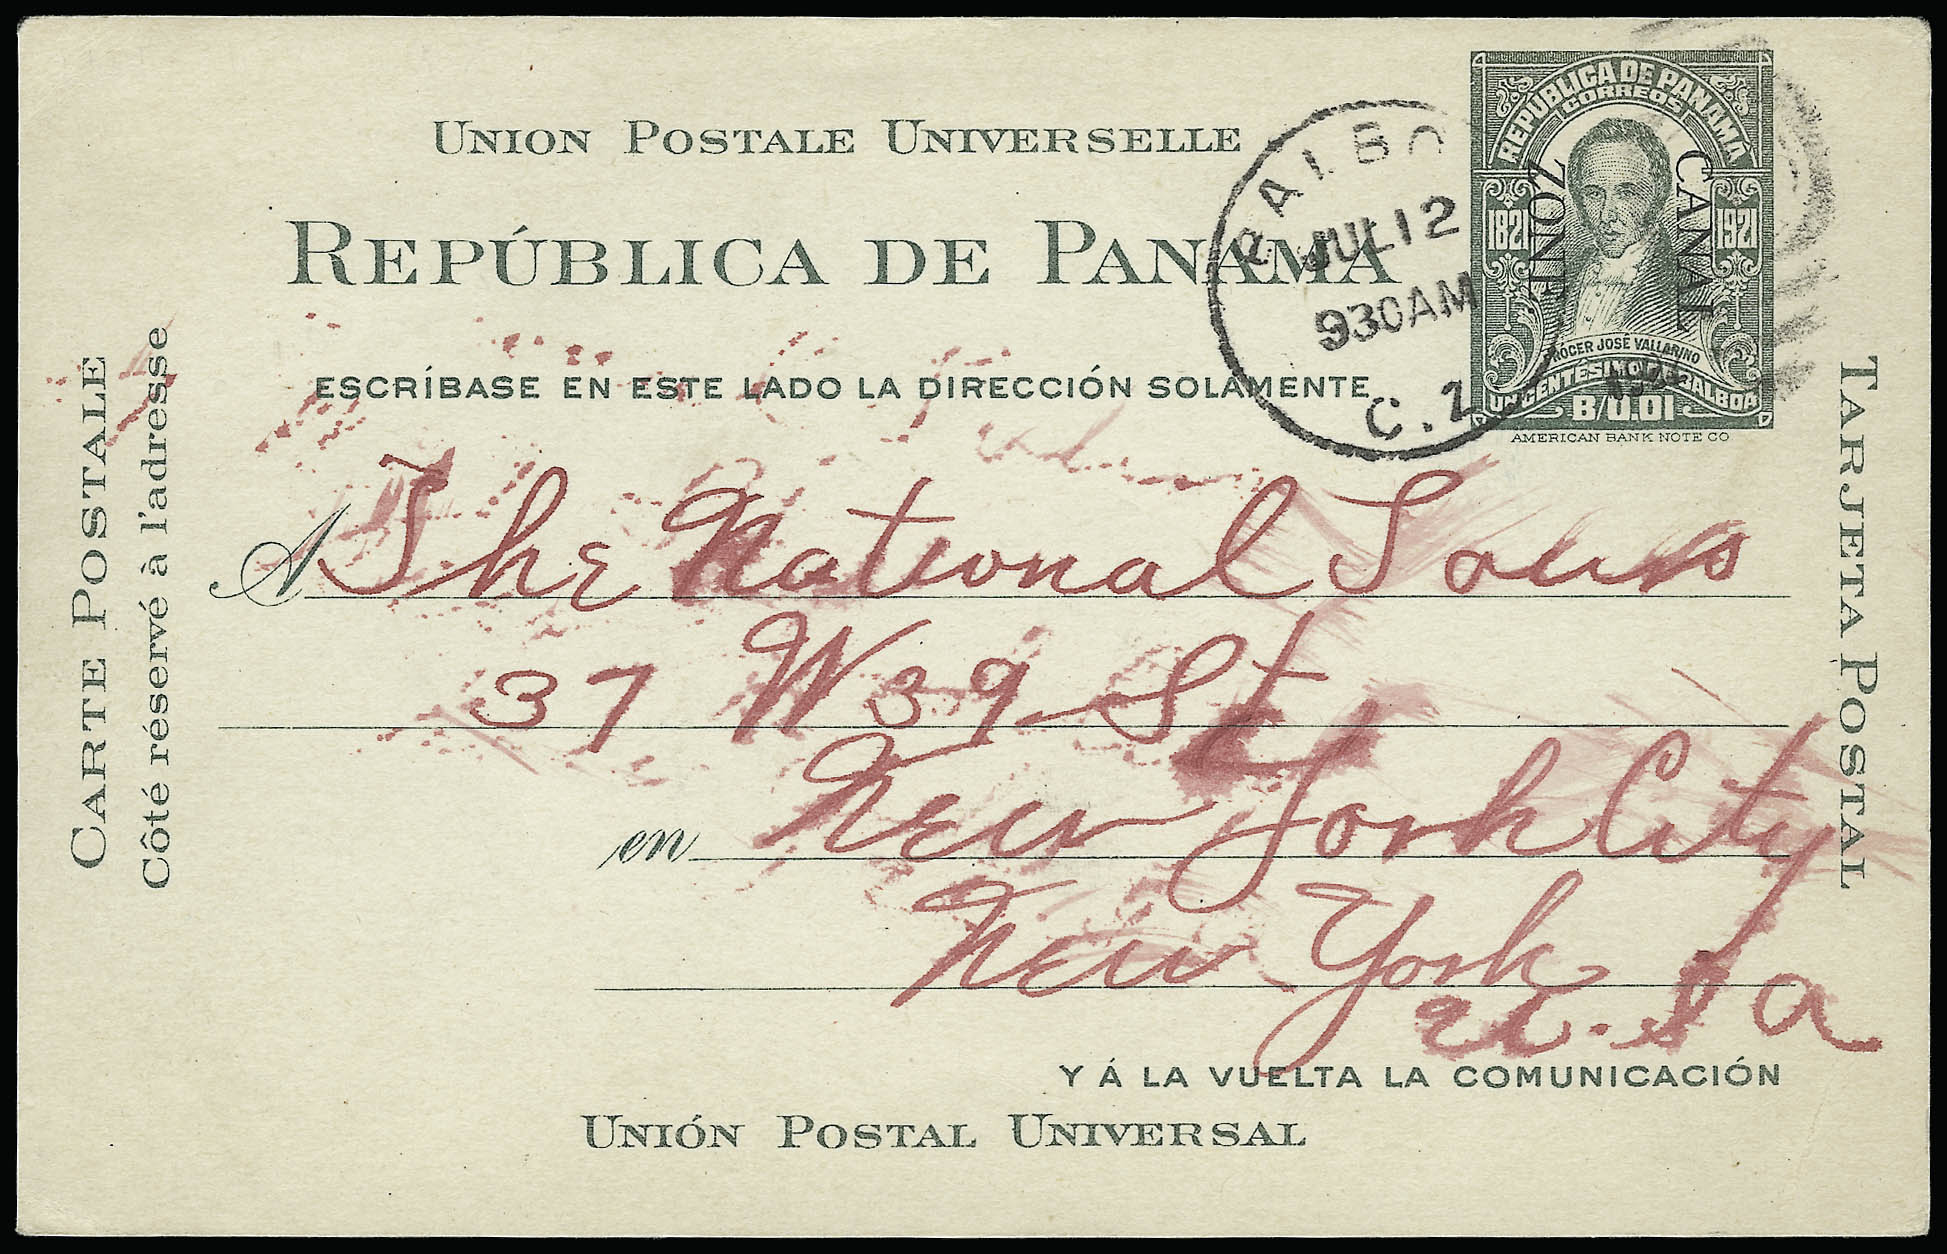 UNION POSTALE UNIVERSELLE
REPÚBLICA DE PANAMA
ESCRÍBASE EN ESTE LADO LA DIRECCIÓN SOLAMENTE
CARTE POSTALE
Côté réservé à l'adresse
BALBO
JUL 12
930 AM
C.Z.
REPÚBLICA DE PANAMÁ
CORREOS
1821 1921
CANAL
ZONE
PROCER JOSÉ VALLARINO
UN CENTÉSIMO DE BALBOA
B/0.01
AMERICAN BANK NOTE CO
TARJETA POSTAL
A The National Tours
37 W 39 St
en New York City
New York
U.S.A
Y Á LA VUELTA LA COMUNICACIÓN
UNIÓN POSTAL UNIVERSAL